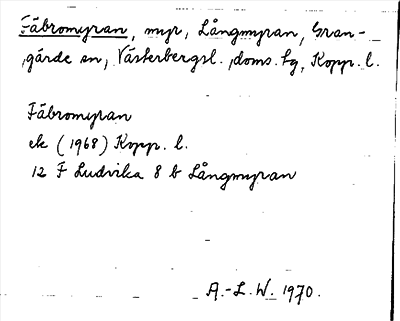 Fäbromyran, myr, Långmyran, Gran-
gärde sn, Västerbergsl. doms. tg, Kopp. l.
Fäbromyran
ek (1968) Kopp. l.
12 F Ludvika 8 b Långmyran
A.-L. W. 1970.